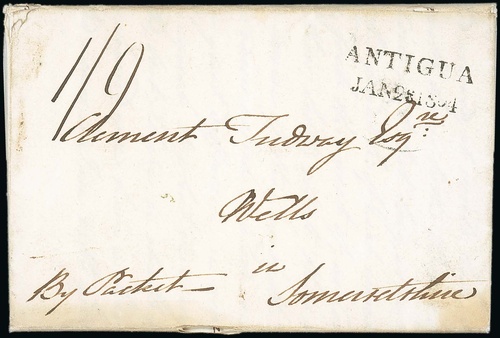 1/9
ANTIGUA
JAN 28 1804
Clement Tudway Esqre:
Wells
in
Somersetshire
By Packet